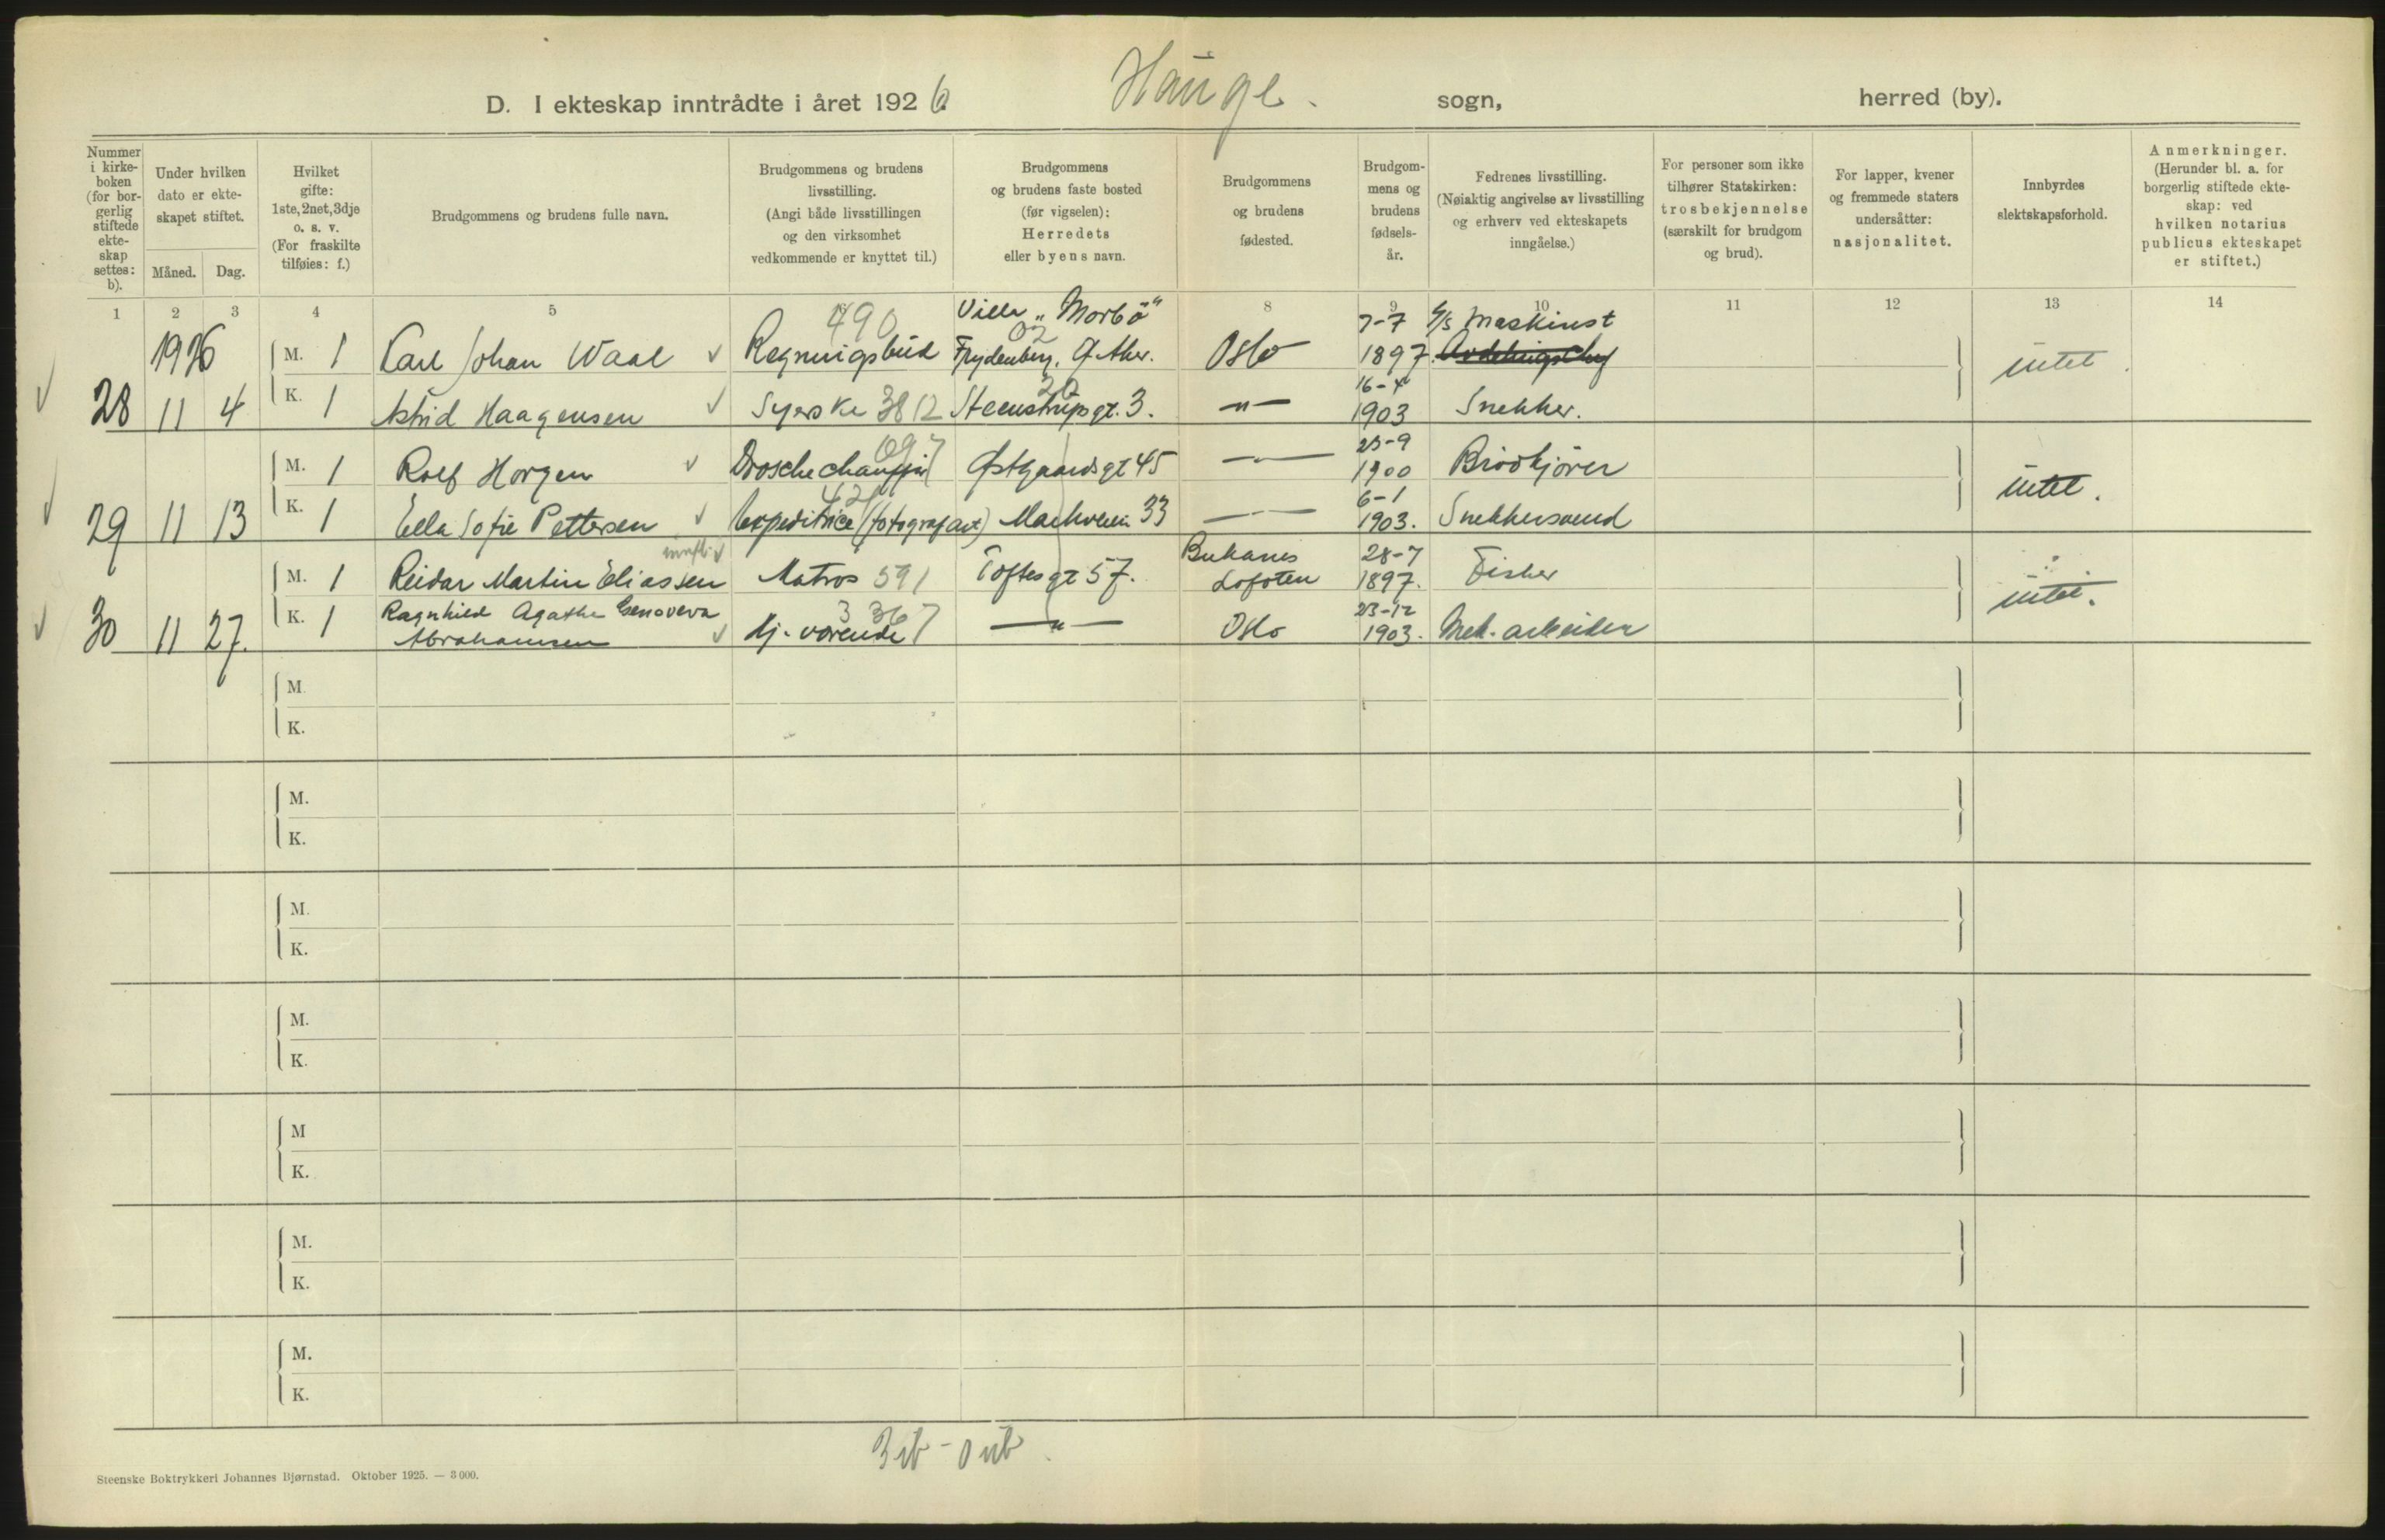 D. I ekteskap inntrådte i året 1926 Hauge. sogn, herred (by).
Nummer i kirkeboken (for borgerlig stiftede ekteskap settes: b).
Under hvilken dato er ekteskapet stiftet.
Måned. Dag.
Hvilket gifte: 1ste, 2net, 3dje o. s. v. (For fraskilte tilføies: f.)
Brudgommens og brudens fulle navn.
Brudgommens og brudens livsstilling. (Angi både livsstillingen og den virksomhet vedkommende er knyttet til.)
Brudgommens og brudens faste bosted (før vigselen): Herredets eller byens navn.
Brudgommens og brudens fødested.
Brudgommens og brudens fødselsår.
Fedrenes livsstilling. (Nøiaktig angivelse av livsstilling og erhverv ved ekteskapets inngåelse.)
For personer som ikke tilhører Statskirken: trosbekjennelse (særskilt for brudgom og brud).
For lapper, kvener og fremmede staters undersåtter: nasjonalitet.
Innbyrdes slektskapsforhold.
Anmerkninger. (Herunder bl. a. for borgerlig stiftede ekteskap: ved hvilken notarius publicus ekteskapet er stiftet.)
1 2 3 4 5 8 9 10 11 12 13 14
490 Villa "Morbö" 7-7 Maskinist
1926 M. 1 Carl Johan Waal Regningsbud 02 Frydenberg, Ø. Aker. Oslo 1897. Avdelingschef intet
28 11 4 K. 1 Astrid Haagensen Syerske 3812 20 Steenstrupsgt. 3. -"- 16-4 1903 Snekker.
M. 1 Rolf Horgen Droschechauffür 097 Østgaardsgt 45 -"- 25-9 1900 Brödkjörer intet.
29 11 13 K. 1 Ella Sofie Pettersen Expeditrice (fotografart) Markveien 33 -"- 6-1 1903. Snekkersvend
M. 1 Reidar Martin Eliassen Matros 591 Toftesgt 57. Buksnes Lofoten 28-7 1897. Fisker intet.
30 11 27. K. 1 Ragnhild Agathe Genoveva Abrahamsen Hj. værende 3 367 -"- Oslo 23-12 1903. Mek. arbeider
M.
K.
M.
K.
M.
K.
M.
K.
M
K.
M.
K.
M.
K.
Steenske Boktrykkeri Johannes Bjørnstad. Oktober 1925. — 3 000.